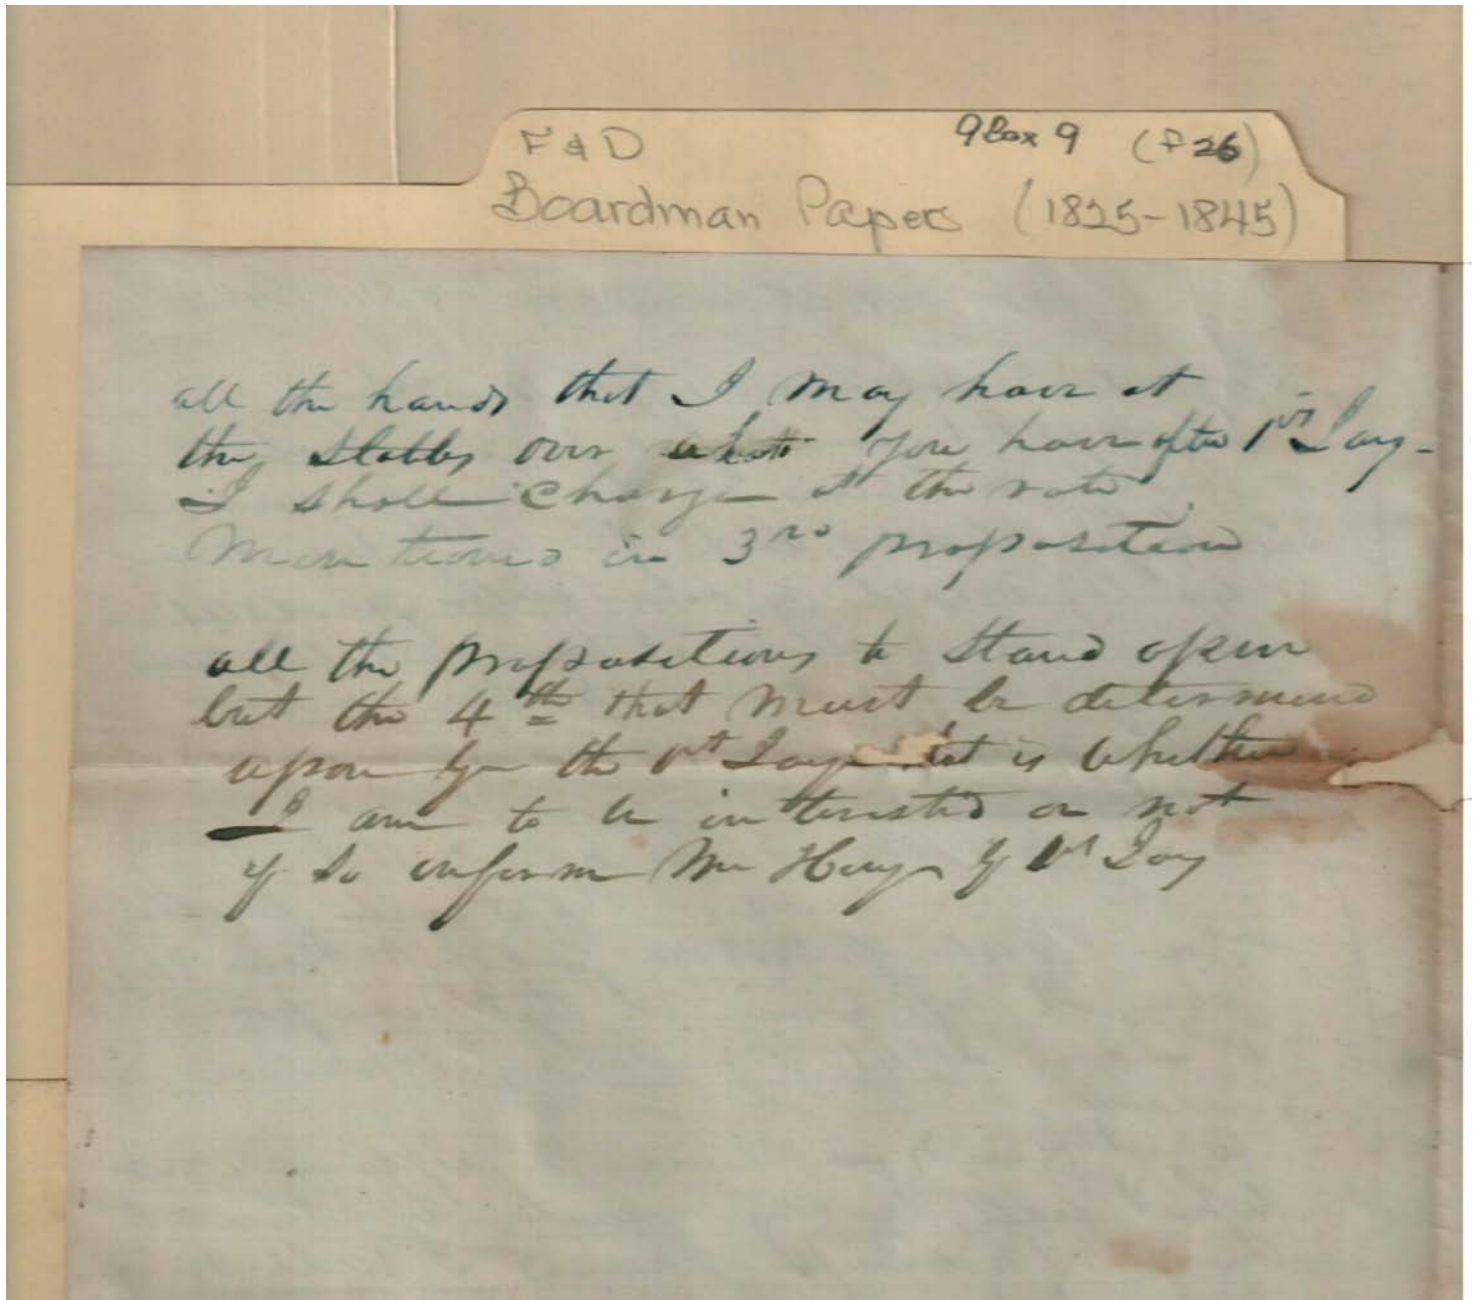 F & D 9 Box 9 (F 26)
Boardman Papers (1825-1845)
all the hands that I may have at
the Stables over what you have after 1st Jany -
I shall charge at the rate
Mentioned in 3rd proposition
all the propositions to stand open
but the 4th that must be determined
upon by the 1st Jany that is whether
I am to be interested or not
if so inform Mr by 1st Jany